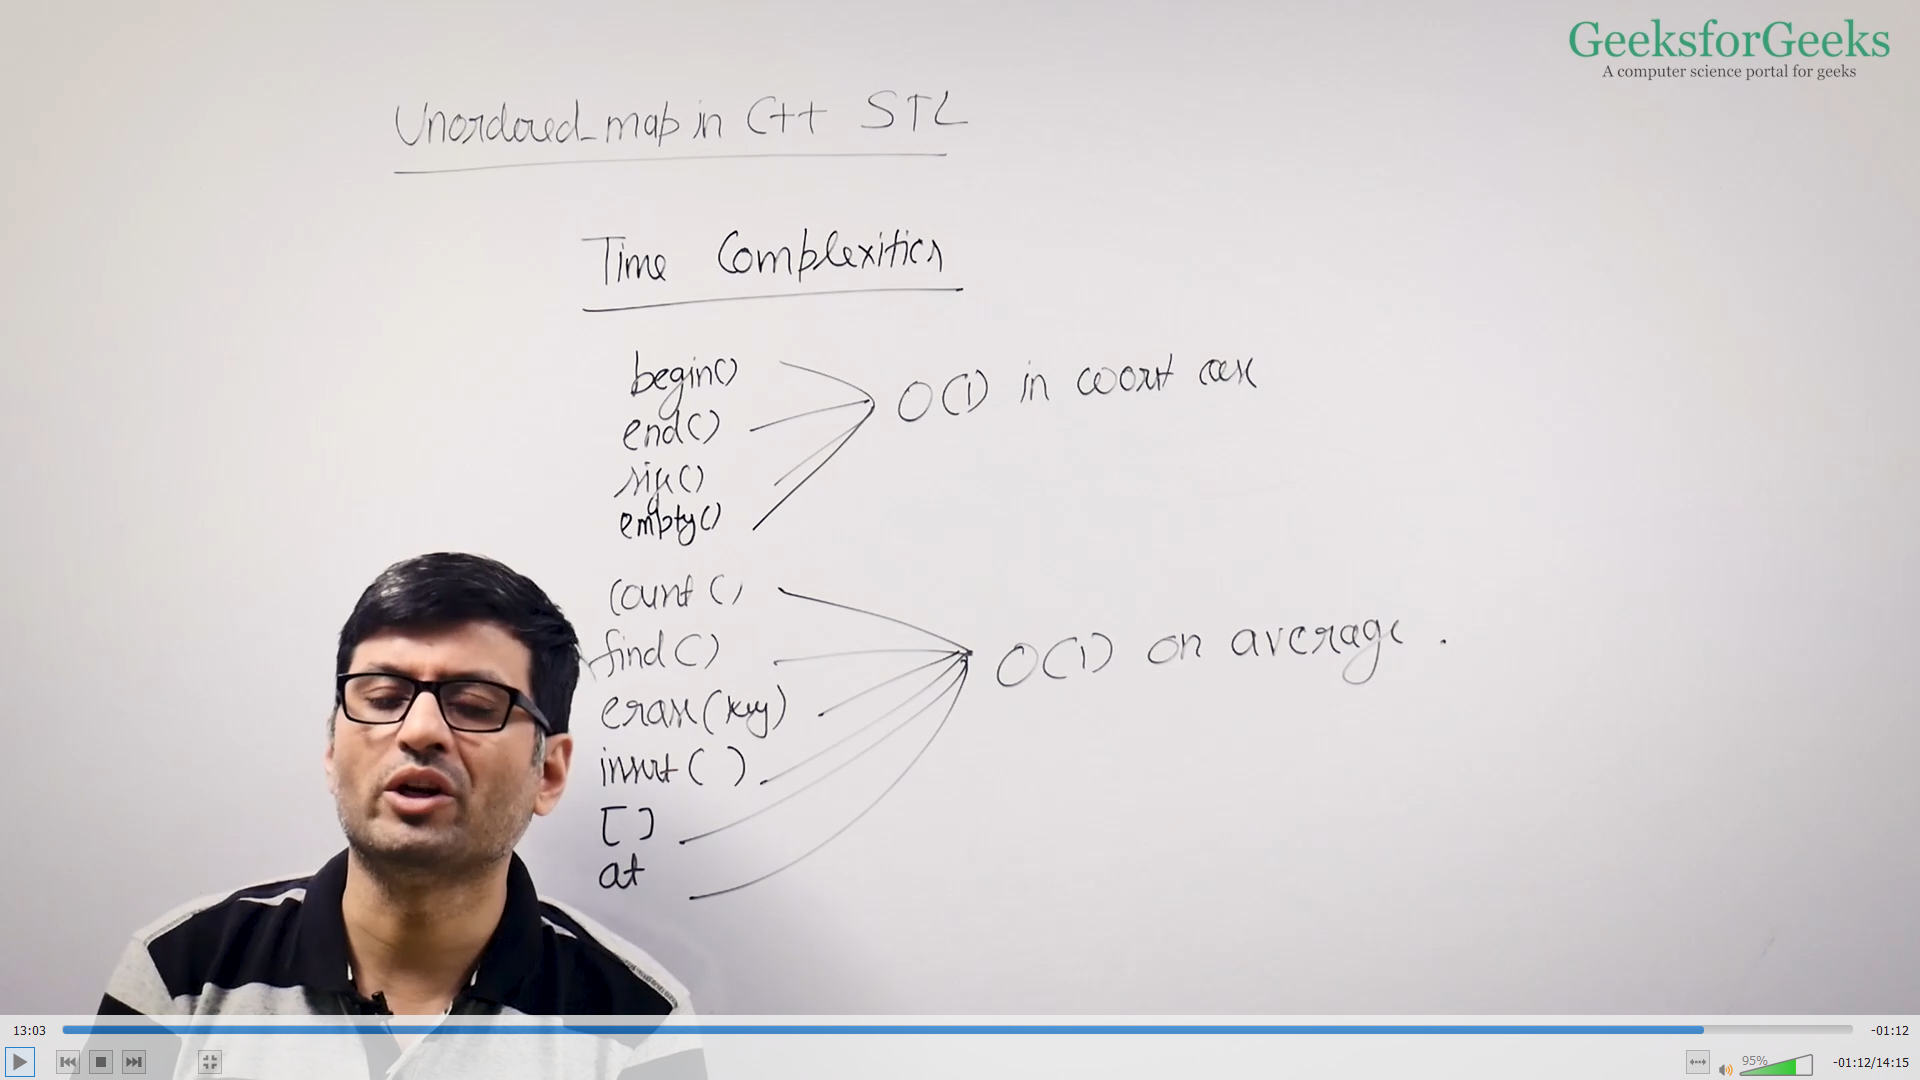 GeeksforGeeks
A computer science portal for geeks
Unordered_map in C++ STL
Time Complexities
begin()
end()
size()
empty()
O(1) in worst case
count()
find()
erase(key)
insert( )
[]
at
O(1) on average.
13:03
-01:12
95%
-01:12/14:15